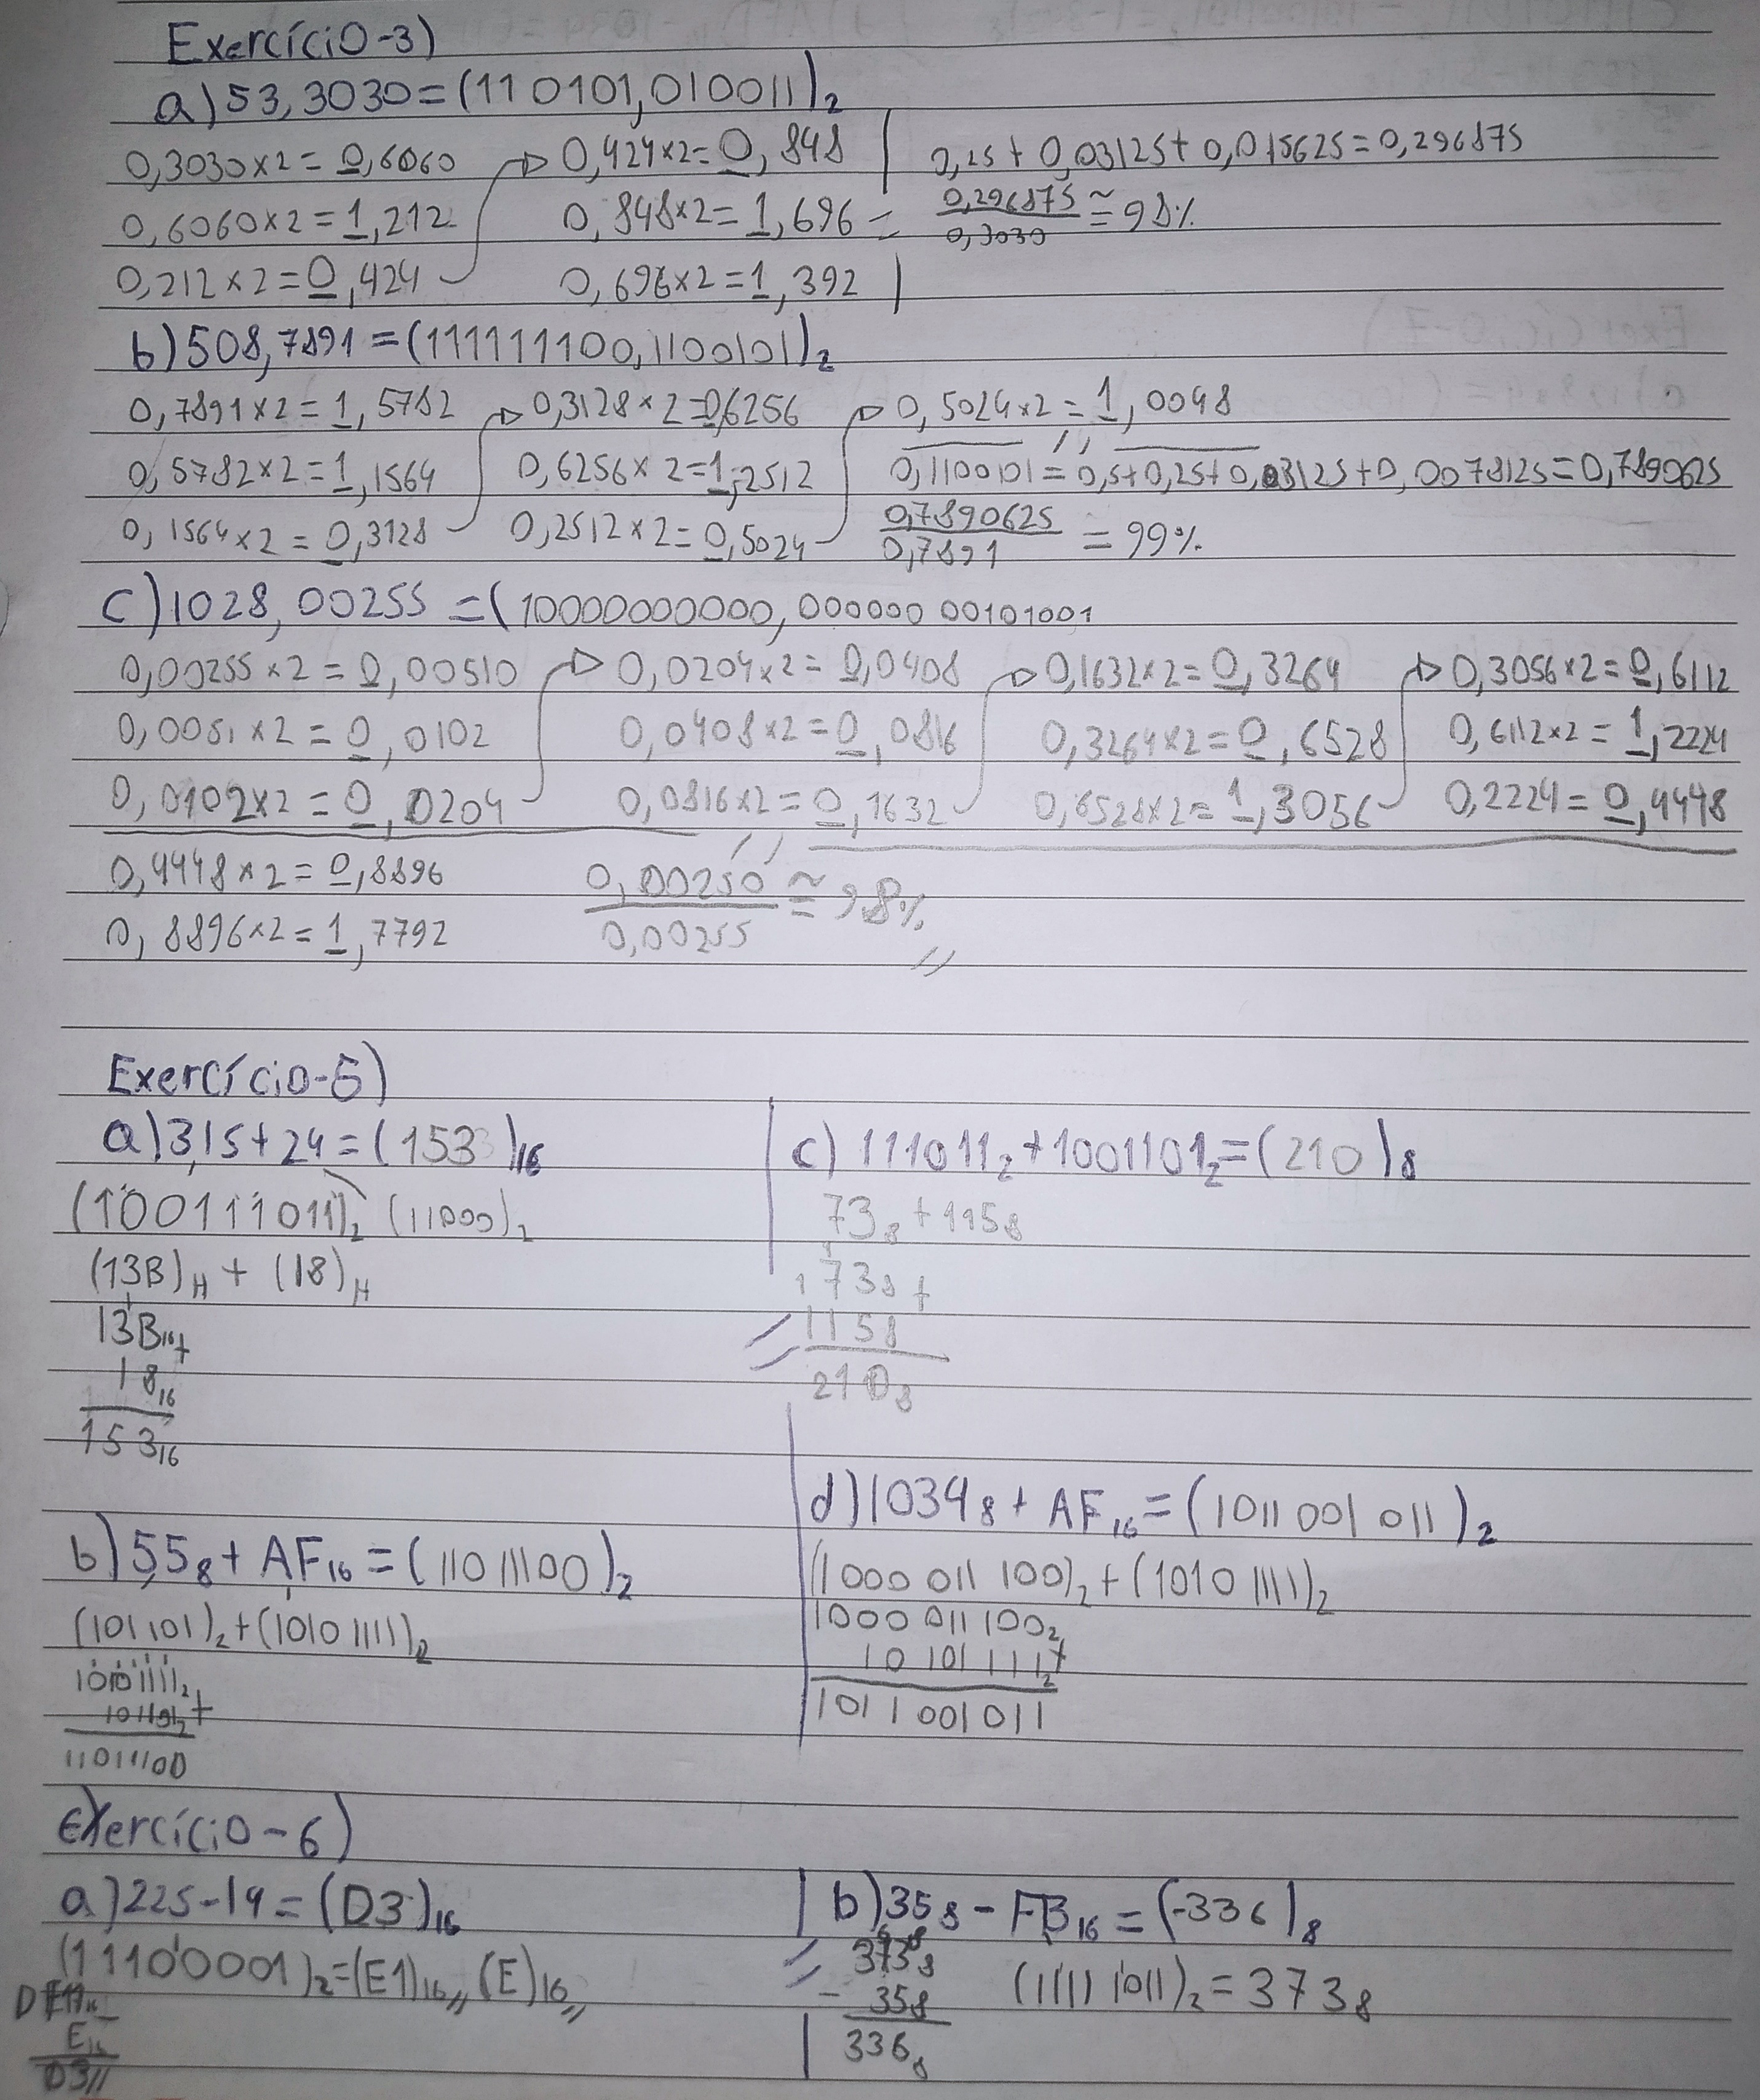 Exercício-3)
a) 53,3030 = (110101,010011)₂
0,3030×2 = 0,6060
0,6060×2 = 1,212
0,212×2 = 0,424
0,424×2 = 0,848
0,848×2 = 1,696
0,696×2 = 1,392
0,25 + 0,03125 + 0,015625 = 0,296875
0,296875
0,3030
≅ 98%
b) 508,7891 = (111111100,1100101)₂
0,7891×2 = 1,5782
0,5782×2 = 1,1564
0,1564×2 = 0,3128
0,3128×2 = 0,6256
0,6256×2 = 1,2512
0,2512×2 = 0,5024
0,5024×2 = 1,0048
0,1100101 = 0,5+0,25+0,03125+0,0078125 = 0,7890625
0,7890625
0,7891
= 99%
c) 1028,00255 = (10000000000,000000 00101001
0,00255×2 = 0,00510
0,0051×2 = 0,0102
0,0102×2 = 0,0204
0,0204×2 = 0,0408
0,0408×2 = 0,0816
0,0816×2 = 0,1632
0,1632×2 = 0,3264
0,3264×2 = 0,6528
0,6528×2 = 1,3056
0,3056×2 = 0,6112
0,6112×2 = 1,2224
0,2224 = 0,4448
0,4448×2 = 0,8896
0,8896×2 = 1,7792
0,00250
0,00255
≅ 98%
Exercício-5)
a) 315 + 24 = (153)₁₆
(100111011)₂ (11000)₂
(13B)H + (18)H
13B₁₆+
18₁₆
153₁₆
b) 55₈ + AF₁₆ = (11011100)₂
(101101)₂ + (10101111)₂
10101111₂
101101₂+
11011100
c) 111011₂ + 1001101₂ = (210)₈
73₈ + 115₈
73₈+
115₈
210₈
d) 1034₈ + AF₁₆ = (1011 001 011)₂
(1000 011 100)₂ + (1010 1111)₂
1000 011 100₂
10 101 111₂+
1011 001 011
Exercício-6)
a) 225-14 = (D3)₁₆
(11100001)₂ = (E1)₁₆ (E)₁₆
E₁₆
D3
b) 35₈ - FB₁₆ = (-336)₈
373₈
- 35₈
336₈
(1111 1011)₂ = 373₈